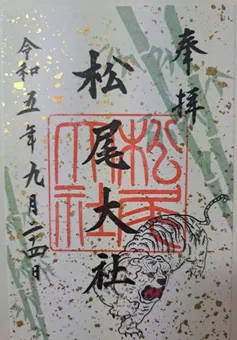 奉拝
松尾大社
松尾大社
令和五年九月二四日